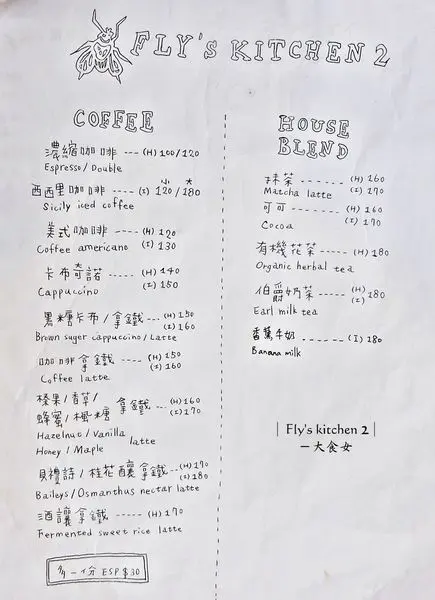 FLY'S KITCHEN 2
COFFEE
濃縮咖啡 --- (H) 100/120
Espresso/Double
西西里咖啡 ---- (I) 小120/大180
Sicily iced coffee
美式咖啡 --- (H) 120
Coffee americano (I) 130
卡布奇諾 ---- (H) 140
Cappuccino (I) 150
黑糖卡布/拿鐵 --- (H) 150
(I) 160
Brown suger cappuccino/Latte
咖啡拿鐵 ---- (H) 150
Coffee latte (I) 160
榛果/香草/
蜂蜜/楓糖 拿鐵 --- (H) 160
(I) 170
Hazelnut/Vanilla
Honey/Maple latte
貝禮詩/桂花釀拿鐵 --- (H) 170
(I) 180
Baileys/Osmanthus nectar latte
酒釀拿鐵 ----- (H) 170
Fermented sweet rice latte
多一份 ESP $30
HOUSE
BLEND
抹茶 ------ (H) 160
Matcha latte (I) 170
可可 ------ (H) 160
Cocoa (I) 170
有機花茶 ---- (H) 180
Organic herbal tea
伯爵奶茶 --- (H)(I) 180
Earl milk tea
香蕉牛奶 ----- (I) 180
Banana milk
| Fly's kitchen 2 |
一犬食女